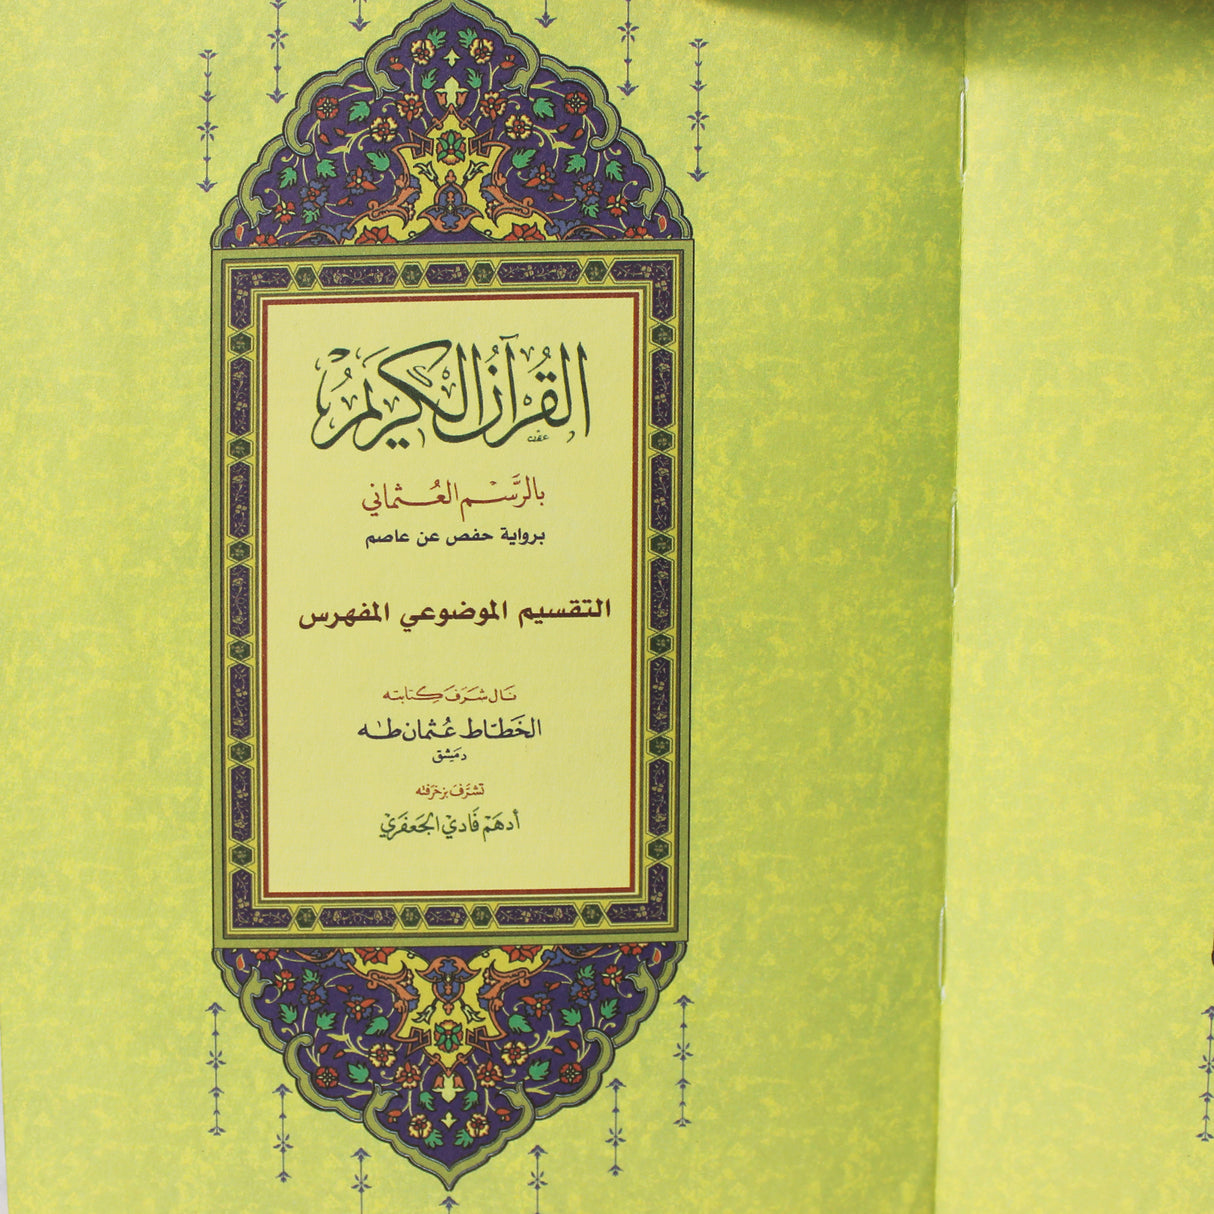 القُرْآنُ الكَرِيْمُ
بالرَّسْمِ العُثماني
برواية حفص عن عاصم
التقسيم الموضوعي المفهرس
نَال شَرَفَ كِتَابته
الخَطّاط عُثمان طٰه
دمَشق
تشَرَّفَ بزخرَفته
أدهَمْ فَادي الجَعفَرَيْ